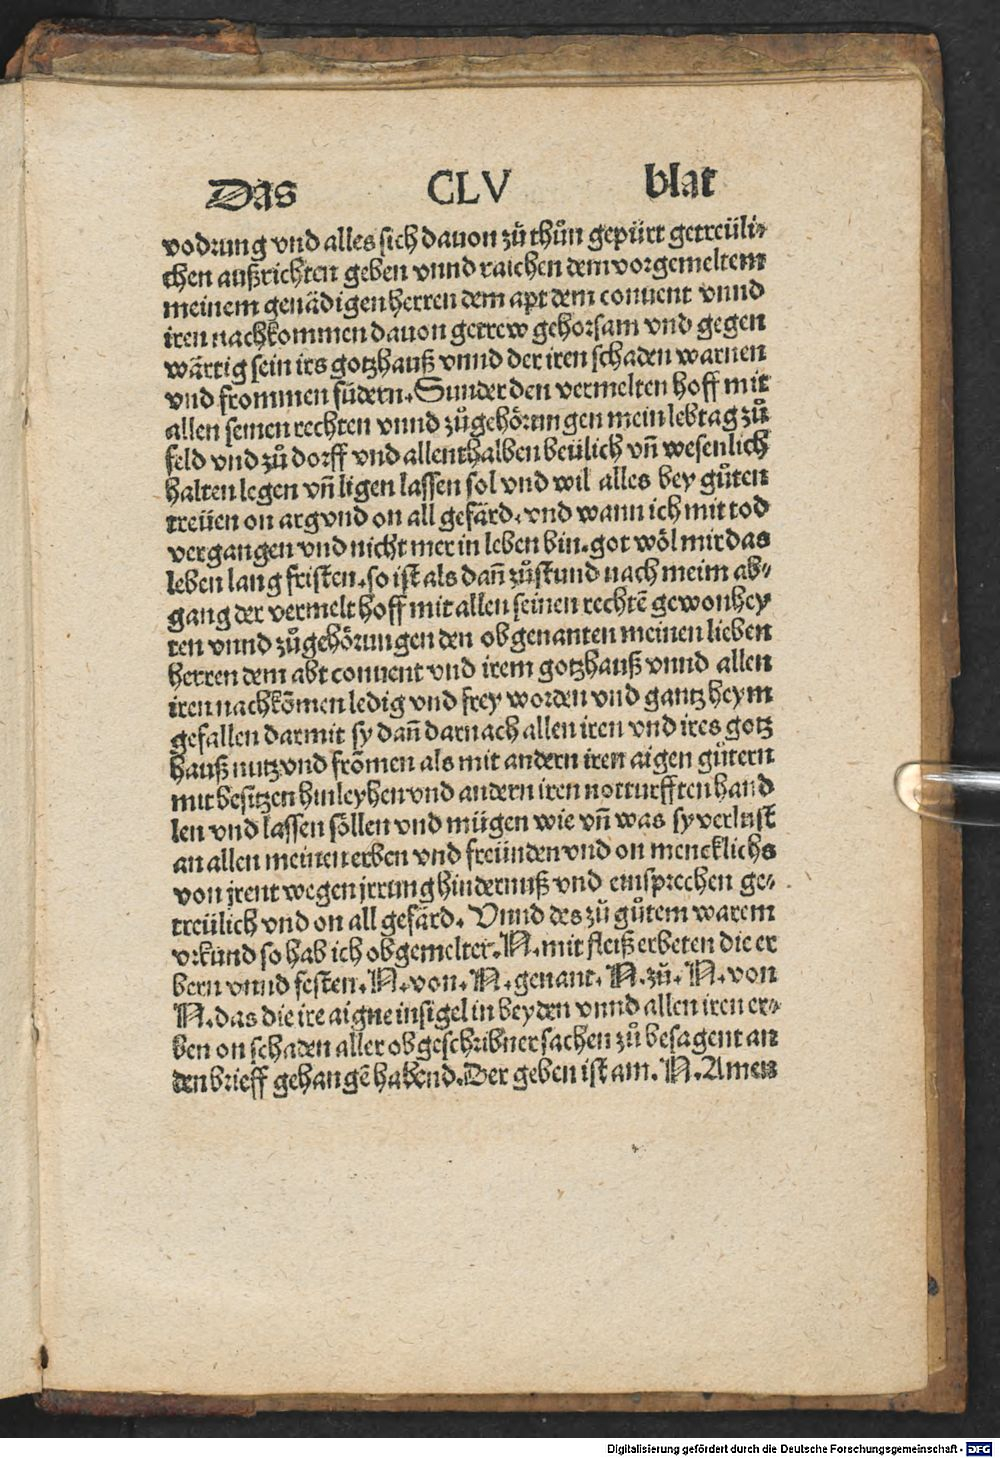 Das CLV blat
vodrung vnd alles sich dauon zů thůn gepürt getreüli-
chen außrichten geben vnnd raichen dem vorgemeltem
meinem genädigen herren dem apt dem conuent vnnd
iren nachkommen dauon getrew gehorsam vnd gegen
wärtig sein irs gotzhauß vnnd der iren schaden warnen
vnd frommen füdern. Sunder den vermelten hoff mit
allen seinen rechten vnnd zůgehörungen mein lebtag zů
feld vnd zů dorff vnd allenthalben beülich vñ wesenlich
halten legen vñ ligen lassen sol vnd wil alles bey gůten
treüen on arg vnd on all gefärd. vnd wann ich mit tod
vergangen vnd nicht mer in leben bin. got wöl mir das
leben lang fristen. so ist als dañ zůstund nach meim ab-
gang der vermelt hoff mit allen seinen rechtē gewonhey
ten vnnd zůgehörungen den obgenanten meinen lieben
herren dem abt conuent vnd irem gotzhauß vnnd allen
iren nachkōmen ledig vnd frey worden vnd gantz heym
gefallen darmit sy dañ darnach allen iren vnd ires gotz
hauß nutz vnd frōmen als mit andern iren aigen gůtern
mit besitzen hinleyhen vnd andern iren notturfften hand
len vnd lassen söllen vnd mügen wie vñ was sy verlust
an allen meinen erben vnd freünden vnd on mencklichs
von jrent wegen jrrung hindernuß vnd einsprechen ge-
treülich vnd on all gefärd. Vnnd des zů gůtem warem
vrkund so hab ich obgemelter. N. mit fleiß erbeten die er
bern vnnd festen. N. von. N. genant. N. zů. N. von
N. das die ire aigne insigel in beyden vnnd allen iren er-
ben on schaden aller obgeschribner sachen zů besagent an
den brieff gehangē habend. Der geben ist am. N. Amen
Digitalisierung gefördert durch die Deutsche Forschungsgemeinschaft - DFG